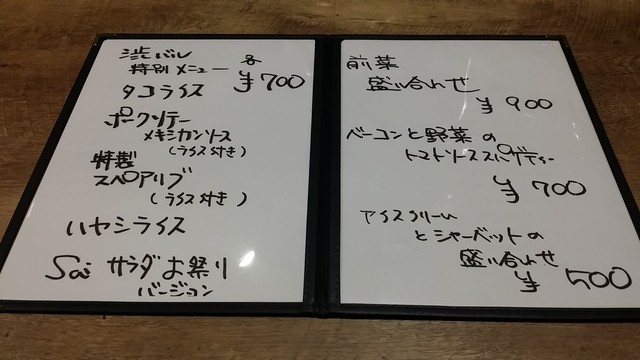 渋バル
特別メニュー 各¥700
タコライス
ポークソテー
メキシカンソース
(ライス付き)
特製
スペアリブ
(ライス付き)
ハヤシライス
Sai サラダお祭り
バージョン
前菜
盛り合わせ
¥900
ベーコンと野菜の
トマトソーススパゲティー
¥700
アイスクリーム
とシャーベットの
盛り合わせ
¥500